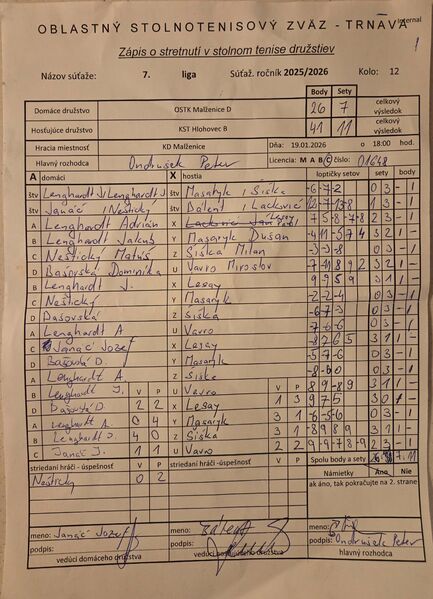 Internal
OBLASTNÝ STOLNOTENISOVÝ ZVÄZ - TRNAVA
1
Zápis o stretnutí v stolnom tenise družstiev
Názov súťaže: 7. liga Súťaž. ročník 2025/2026 Kolo: 12
Body Sety
Domáce družstvo OSTK Malženice D 26 7 celkový výsledok
Hosťujúce družstvo KST Hlohovec B 41 11 celkový výsledok
Hracia miestnosť KD Malženice Dňa: 19.01.2026 o 18:00 hod.
Hlavný rozhodca Ondrušek Peter Licencia: M A B C číslo: 01648
A domáci X hostia loptičky setov sety body
štv Lenghardt J/Lenghardt J. štv Masaryk / Siska -6-7-2 0 3 - 1
štv Janáč / Neštický štv Bálent / Lackovič
A Lenghardt Adrián X Lesay 2 3 - 1
B Lenghardt Jakub Y Masaryk Dušan 3 2 1 -
C Neštický Matúš Z Siska Milan -3-3-8 0 3 - 1
D Bašovská Dominika U Vavro Miroslov 3 2 1 -
B Lenghardt J. X Lesay 3 1 1 -
C Neštický Y Masaryk -2-2-4 0 3 - 1
D Bašovská Z Siska -6-7-3 0 3 - 1
A Lenghardt A U Vavro -7-6-6 0 3 - 1
C Janáč Jozef X Lesay
D Bašovská D Y Masaryk -5-7-6 0 3 - 1
A Lenghardt A. Z Siska 0 3 - 1
B Lenghardt J. V P U Vavro V P 8 9-8 9 3 1 1 -
D Bašovská D. 2 2 X Lesay 1 3 9 7 5 3 0 1 -
A Lenghardt A 0 4 Y Masaryk 3 1 -6-5-6 0 3 - 1
B Lenghardt J. 4 0 Z Siska 1 3 -8 9 8 9 3 1 1 -
C Janáč J. 1 1 U Vavro 2 2 -9-9 7 8-9 2 3 - 1
striedaní hráči - úspešnosť V P striedaní hráči - úspešnosť V P Spolu body a sety 7 11
Neštický 0 2 Námietky Áno Nie
ak áno, tak pokračujte na 2. strane
meno: Janáč Jozef meno: Bálent meno:
podpis: podpis: podpis: Ondrušek Peter
vedúci domáceho družstva vedúci hosťujúceho družstva hlavný rozhodca